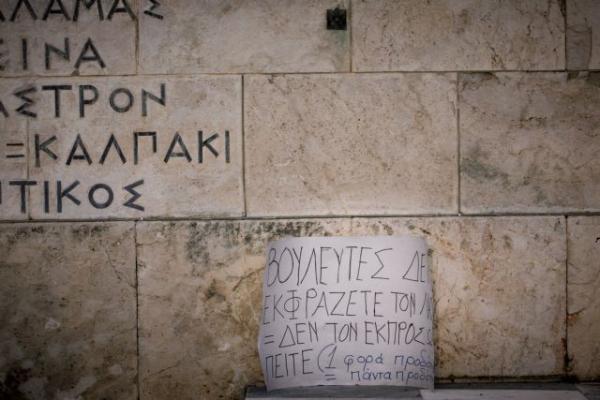 ΛΑΜΑΣ
ΕΙΝΑ
ΑΣΤΡΟΝ
=ΚΑΛΠΑΚΙ
ΤΙΚΟΣ
ΒΟΥΛΕΥΤΕΣ ΔΕ
ΕΚΦΡΑΖΕΤΕ ΤΟΝ
= ΔΕΝ ΤΟΝ ΕΚΠΡΟΣ
ΠΕΙΤΕ (1 φορά προδ
= πάντα προδ